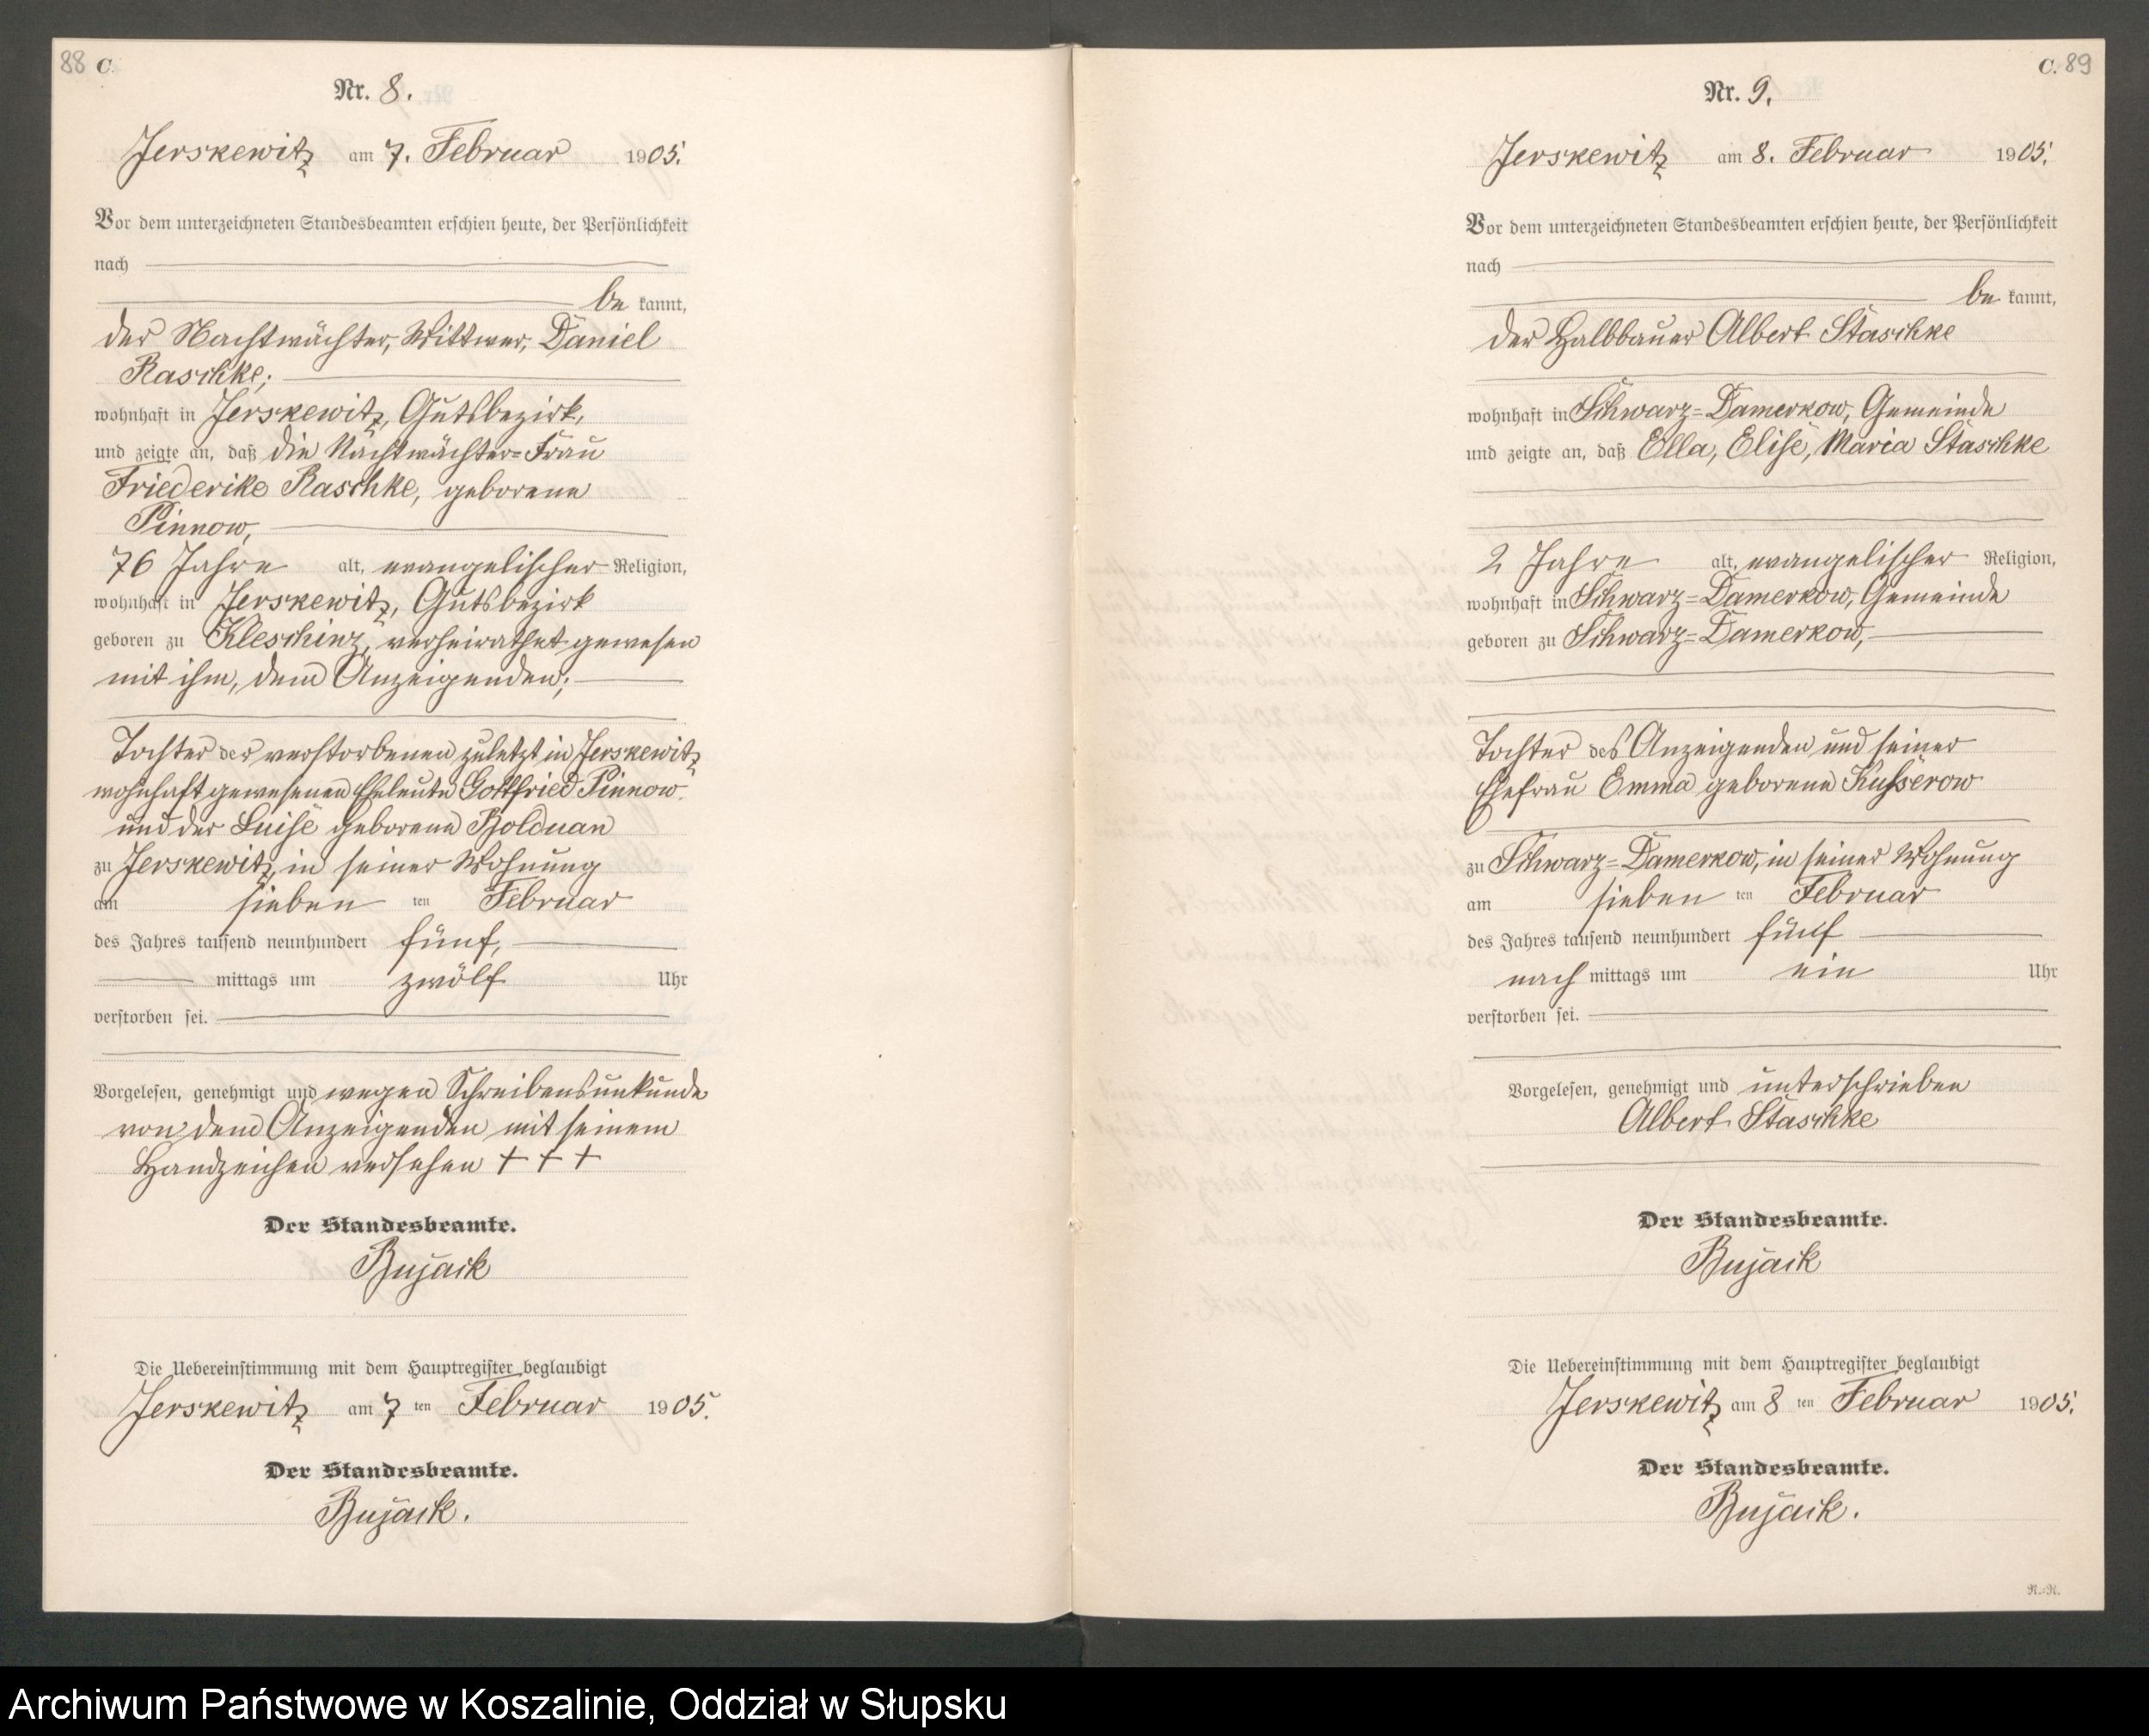 88 C.
Nr. 8.
Jerskewitz am 7. Februar 1905.
Vor dem unterzeichneten Standesbeamten erschien heute, der Persönlichkeit
nach
be kannt,
der Nachtwächter, Wittwer, Daniel
Raschke;
wohnhaft in Jerskewitz, Gutsbezirk,
und zeigte an, daß die Nachtwächter=Frau
Friederike Raschke, geborene
Pinnow,
76 Jahre alt, evangelischer Religion,
wohnhaft in Jerskewitz, Gutsbezirk
geboren zu Kleschinz, verheirathet gewesen
mit ihm, dem Anzeigenden;
Tochter der verstorbenen zuletzt in Jerskewitz
wohnhaft gewesenen Eheleute Gottfried Pinnow
und der Luise geborene Bolduan
zu Jerskewitz, in seiner Wohnung
am sieben ten Februar
des Jahres tausend neunhundert fünf,
mittags um zwölf Uhr
verstorben sei.
Vorgelesen, genehmigt und wegen Schreibensunkunde
von dem Anzeigenden mit seinem
Handzeichen versehen + + +
Der Standesbeamte.
Bujack
Die Uebereinstimmung mit dem Hauptregister beglaubigt
Jerskewitz am 7 ten Februar 1905.
Der Standesbeamte.
Bujack.
C. 89
Nr. 9.
Jerskewitz am 8. Februar 1905.
Vor dem unterzeichneten Standesbeamten erschien heute, der Persönlichkeit
nach
be kannt,
der Halbbauer Albert Staschke
wohnhaft in Schwarz=Damerkow, Gemeinde
und zeigte an, daß Ella, Elise, Maria Staschke
2 Jahre alt, evangelischer Religion,
wohnhaft in Schwarz=Damerkow, Gemeinde
geboren zu Schwarz=Damerkow,
Tochter des Anzeigenden und seiner
Ehefrau Emma geborene Kusserow
zu Schwarz=Damerkow, in seiner Wohnung
am sieben ten Februar
des Jahres tausend neunhundert fünf
nach mittags um ein Uhr
verstorben sei.
Vorgelesen, genehmigt und unterschrieben
Albert Staschke
Der Standesbeamte.
Bujack
Die Uebereinstimmung mit dem Hauptregister beglaubigt
Jerskewitz am 8 ten Februar 1905.
Der Standesbeamte.
Bujack.
R.=R.
Archiwum Państwowe w Koszalinie, Oddział w Słupsku